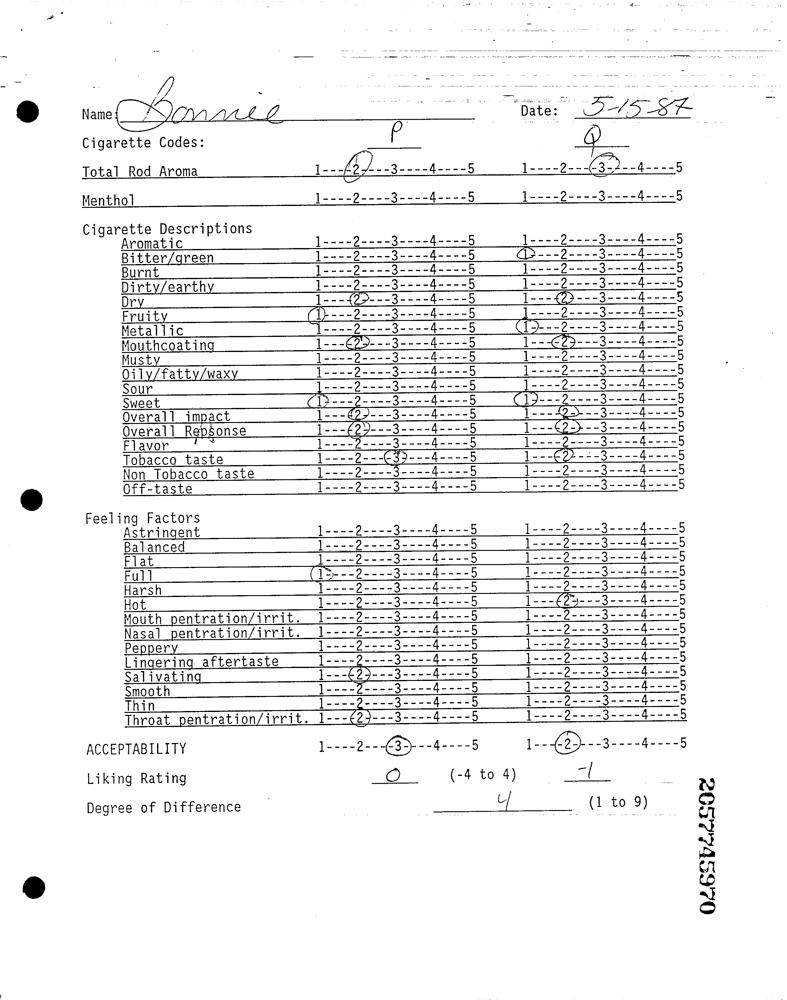 Name: Bonnie Date: 5-15-87
Cigarette Codes: P Q
Total Rod Aroma 1----2----3----4----5 1----2----3----4----5
Menthol 1----2----3----4----5 1----2----3----4----5
Cigarette Descriptions
Aromatic 1----2----3----4----5 1----2----3----4----5
Bitter/green 1----2----3----4----5 1----2----3----4----5
Burnt 1----2----3----4----5 1----2----3----4----5
Dirty/earthy 1----2----3----4----5 1----2----3----4----5
Dry 1----2----3----4----5 1----2----3----4----5
Fruity 1----2----3----4----5 1----2----3----4----5
Metallic 1----2----3----4----5 1----2----3----4----5
Mouthcoating 1----2----3----4----5 1----2----3----4----5
Musty 1----2----3----4----5 1----2----3----4----5
Oily/fatty/waxy 1----2----3----4----5 1----2----3----4----5
Sour 1----2----3----4----5 1----2----3----4----5
Sweet 1----2----3----4----5 1----2----3----4----5
Overall impact 1----2----3----4----5 1----2----3----4----5
Overall Repsonse 1----2----3----4----5 1----2----3----4----5
Flavor 1----2----3----4----5 1----2----3----4----5
Tobacco taste 1----2----3----4----5 1----2----3----4----5
Non Tobacco taste 1----2----3----4----5 1----2----3----4----5
Off-taste 1----2----3----4----5 1----2----3----4----5
Feeling Factors
Astringent 1----2----3----4----5 1----2----3----4----5
Balanced 1----2----3----4----5 1----2----3----4----5
Flat 1----2----3----4----5 1----2----3----4----5
Full 1----2----3----4----5 1----2----3----4----5
Harsh 1----2----3----4----5 1----2----3----4----5
Hot 1----2----3----4----5 1----2----3----4----5
Mouth pentration/irrit. 1----2----3----4----5 1----2----3----4----5
Nasal pentration/irrit. 1----2----3----4----5 1----2----3----4----5
Peppery 1----2----3----4----5 1----2----3----4----5
Lingering aftertaste 1----2----3----4----5 1----2----3----4----5
Salivating 1----2----3----4----5 1----2----3----4----5
Smooth 1----2----3----4----5 1----2----3----4----5
Thin 1----2----3----4----5 1----2----3----4----5
Throat pentration/irrit. 1----2----3----4----5 1----2----3----4----5
ACCEPTABILITY 1----2----3----4----5 1----2----3----4----5
Liking Rating 0 (-4 to 4) -1
Degree of Difference 4 (1 to 9)
2057745970